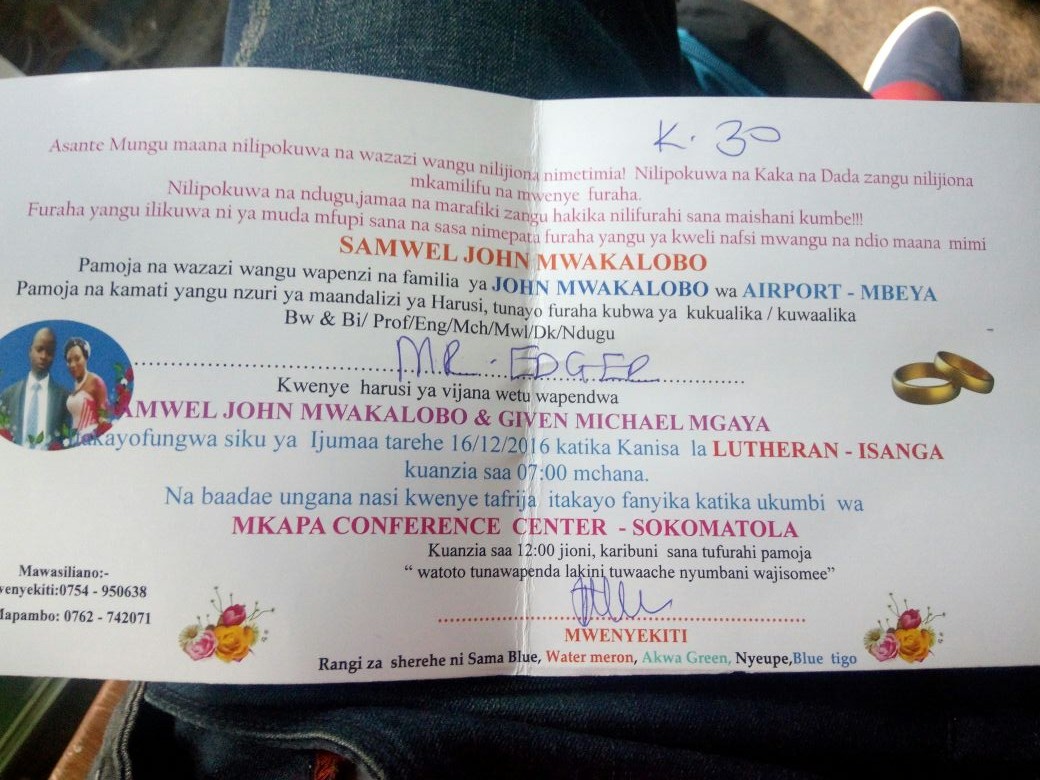 K. 30
Asante Mungu maana nilipokuwa na wazazi wangu nilijiona nimetimia! Nilipokuwa na Kaka na Dada zangu nilijiona
mkamilifu na mwenye furaha.
Nilipokuwa na ndugu,jamaa na marafiki zangu hakika nilifurahi sana maishani kumbe!!!
Furaha yangu ilikuwa ni ya muda mfupi sana na sasa nimepata furaha yangu ya kweli nafsi mwangu na ndio maana mimi
SAMWEL JOHN MWAKALOBO
Pamoja na wazazi wangu wapenzi na familia ya JOHN MWAKALOBO wa AIRPORT - MBEYA
Pamoja na kamati yangu nzuri ya maandalizi ya Harusi, tunayo furaha kubwa ya kukualika / kuwaalika
Bw & Bi/ Prof/Eng/Mch/Mwl/Dk/Ndugu
MR. EDGER
Kwenye harusi ya vijana wetu wapendwa
AMWEL JOHN MWAKALOBO & GIVEN MICHAEL MGAYA
akayofungwa siku ya Ijumaa tarehe 16/12/2016 katika Kanisa la LUTHERAN - ISANGA
kuanzia saa 07:00 mchana.
Na baadae ungana nasi kwenye tafrija itakayo fanyika katika ukumbi wa
MKAPA CONFERENCE CENTER - SOKOMATOLA
Kuanzia saa 12:00 jioni, karibuni sana tufurahi pamoja
“ watoto tunawapenda lakini tuwaache nyumbani wajisomee”
Mawasiliano:-
wenyekiti:0754 - 950638
Mapambo: 0762 - 742071
MWENYEKITI
Rangi za sherehe ni Sama Blue, Water meron, Akwa Green, Nyeupe,Blue tigo